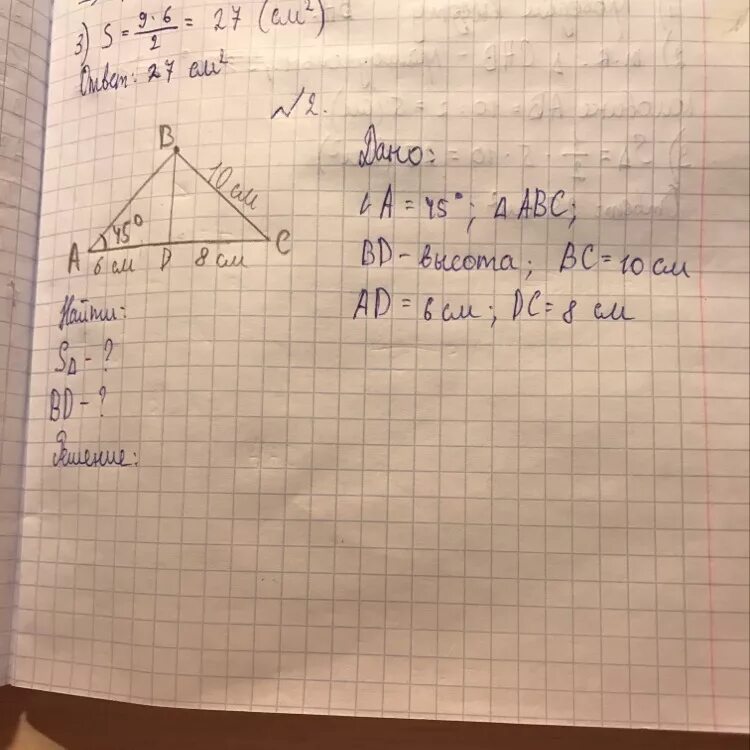 3) S = 9·6/2 = 27 (см²)
Ответ: 27 см²
№2.
B
10 см
45°
A
6 см
D
8 см
C
Дано:
∠A = 45°; △ABC;
BD - высота; BC = 10 см
AD = 6 см; DC = 8 см
Найти:
S△ - ?
BD - ?
Решение: